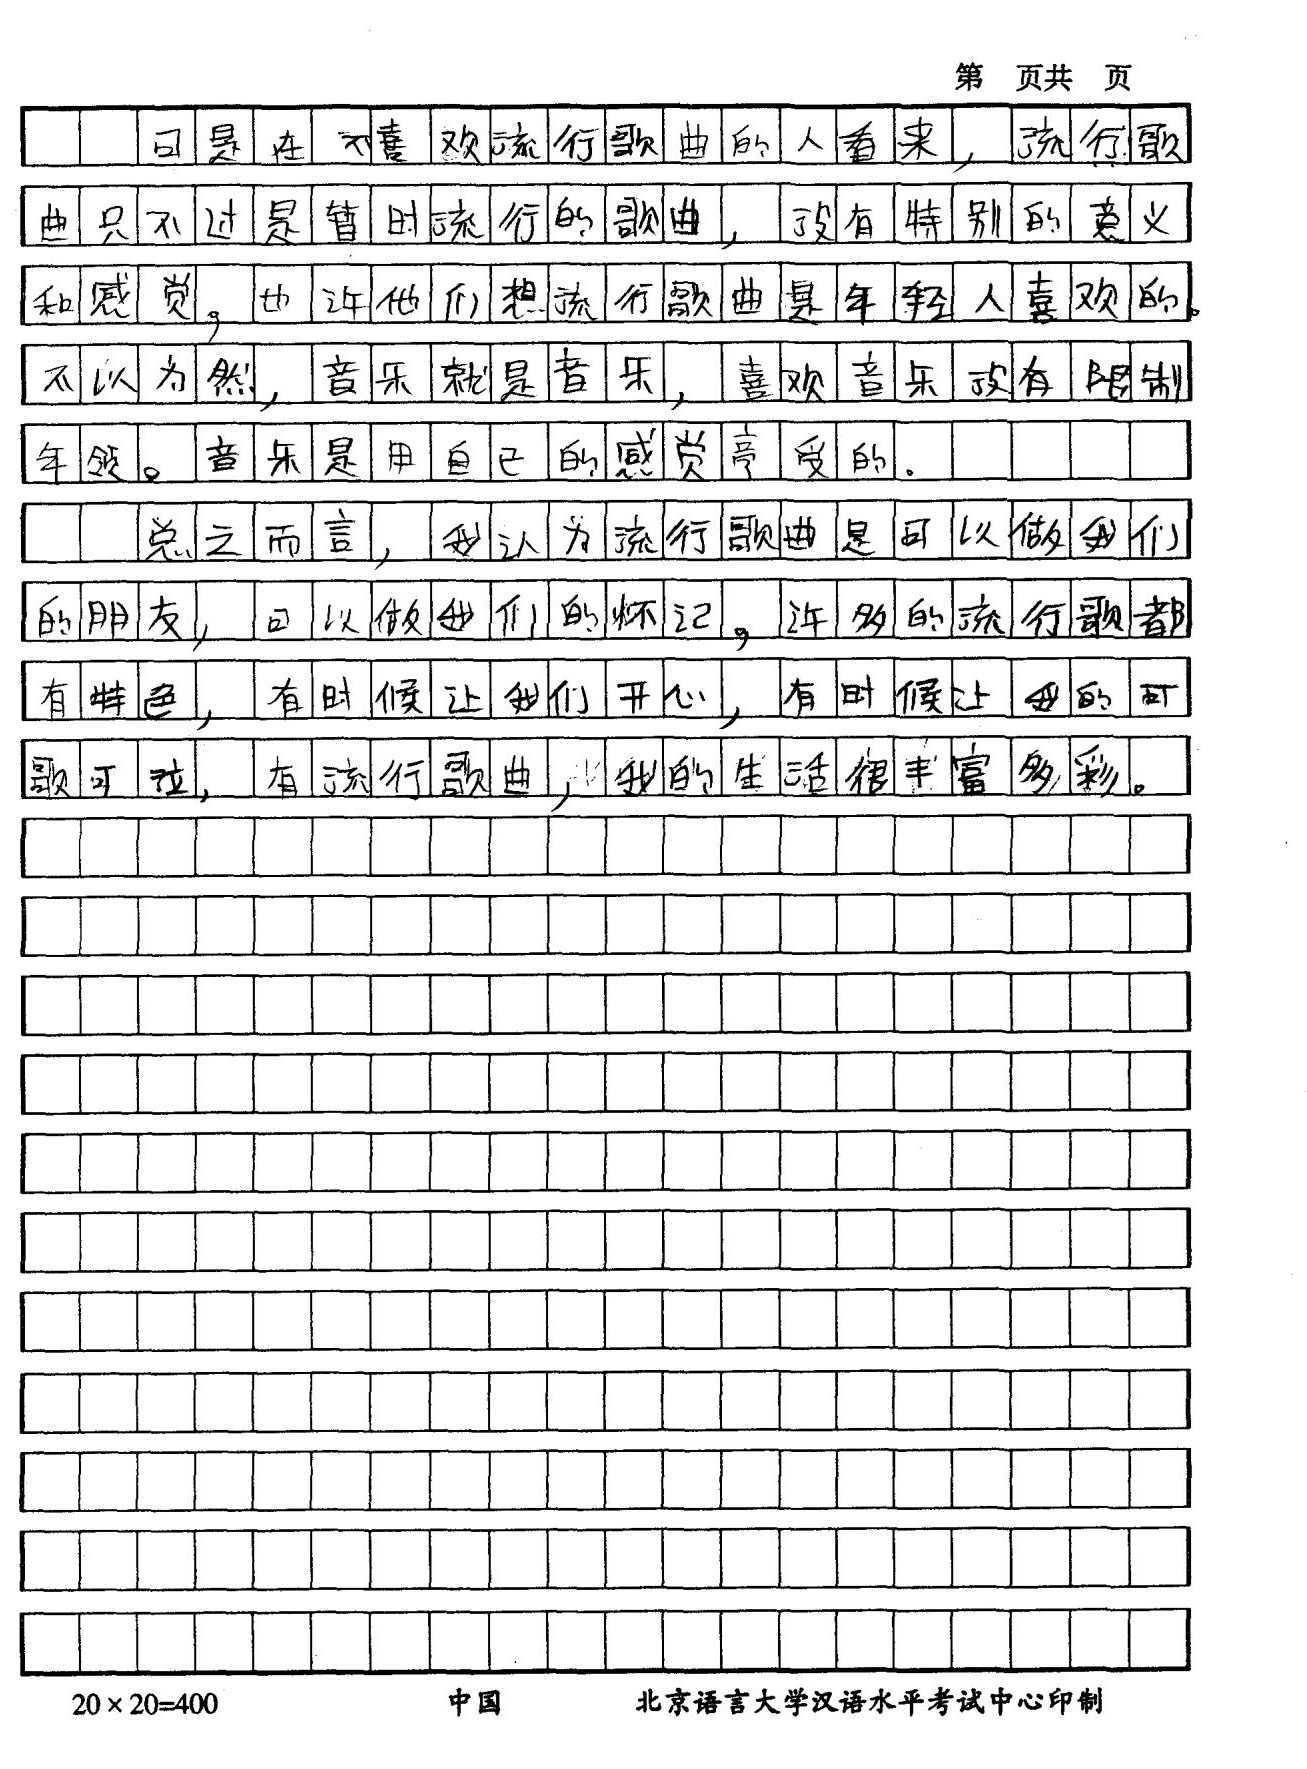 第 页共 页
可是在不喜欢流行歌曲的人看来，流行歌
曲只不过是暂时流行的歌曲，没有特别的意义
和感觉，也许他们想流行歌曲是年轻人喜欢的。
不以为然，音乐就是音乐，喜欢音乐没有限制
年领。音乐是用自己的感觉享受的。
总之而言，我认为流行歌曲是可以做我们
的朋友，可以做我们的怀记，许多的流行歌都
有特色，有时候让我们开心，有时候让我的可
歌可泣，有流行歌曲，我的生活很丰富多彩。
20×20=400 中国 北京语言大学汉语水平考试中心印制